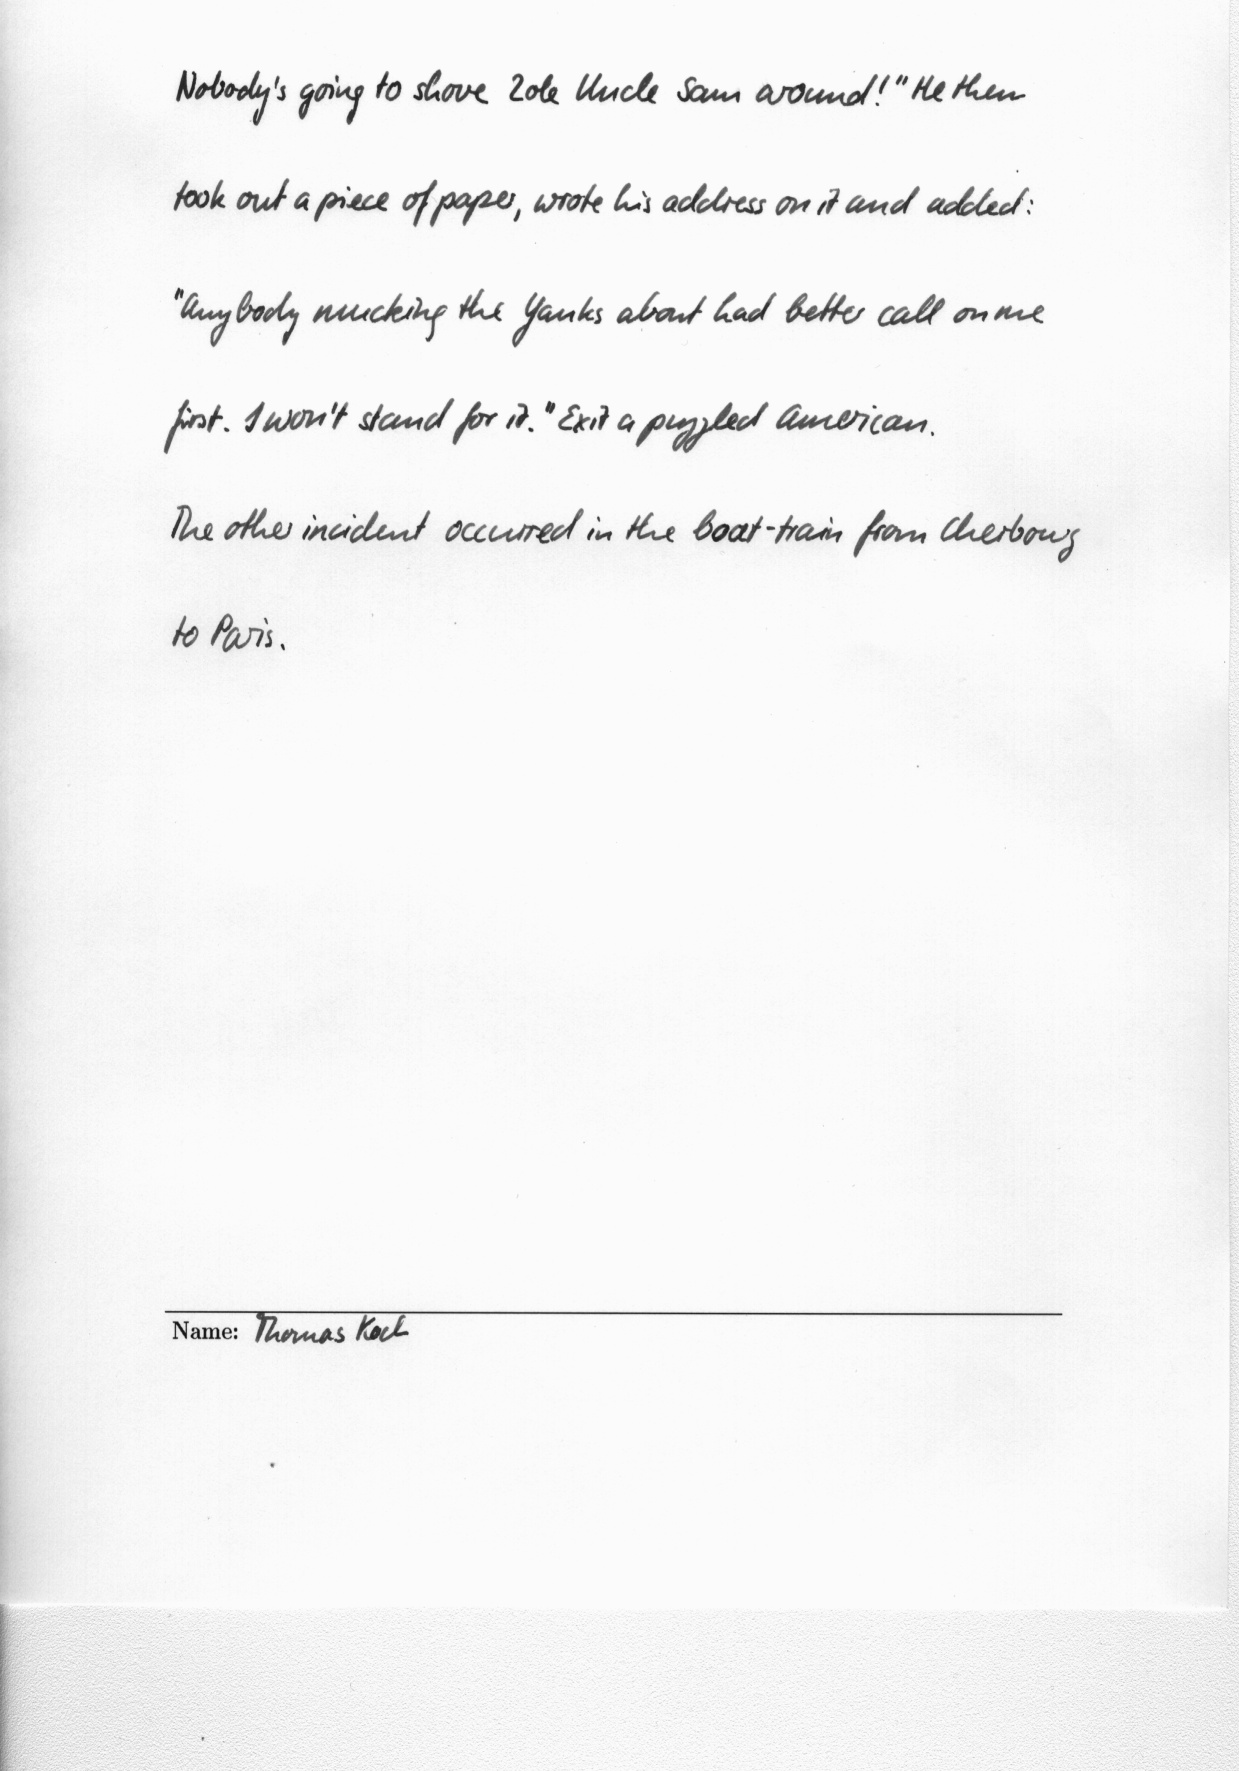 Nobody's going to shove lole Uncle Sam around!" He then
took out a piece of paper, wrote his address on it and added:
"Anybody mucking the Yanks about had better call on me
first. I won't stand for it." Exit a puzzled American.
The other incident occurred in the boat-train from Cherbourg
to Paris.
Name: Thomas Koch